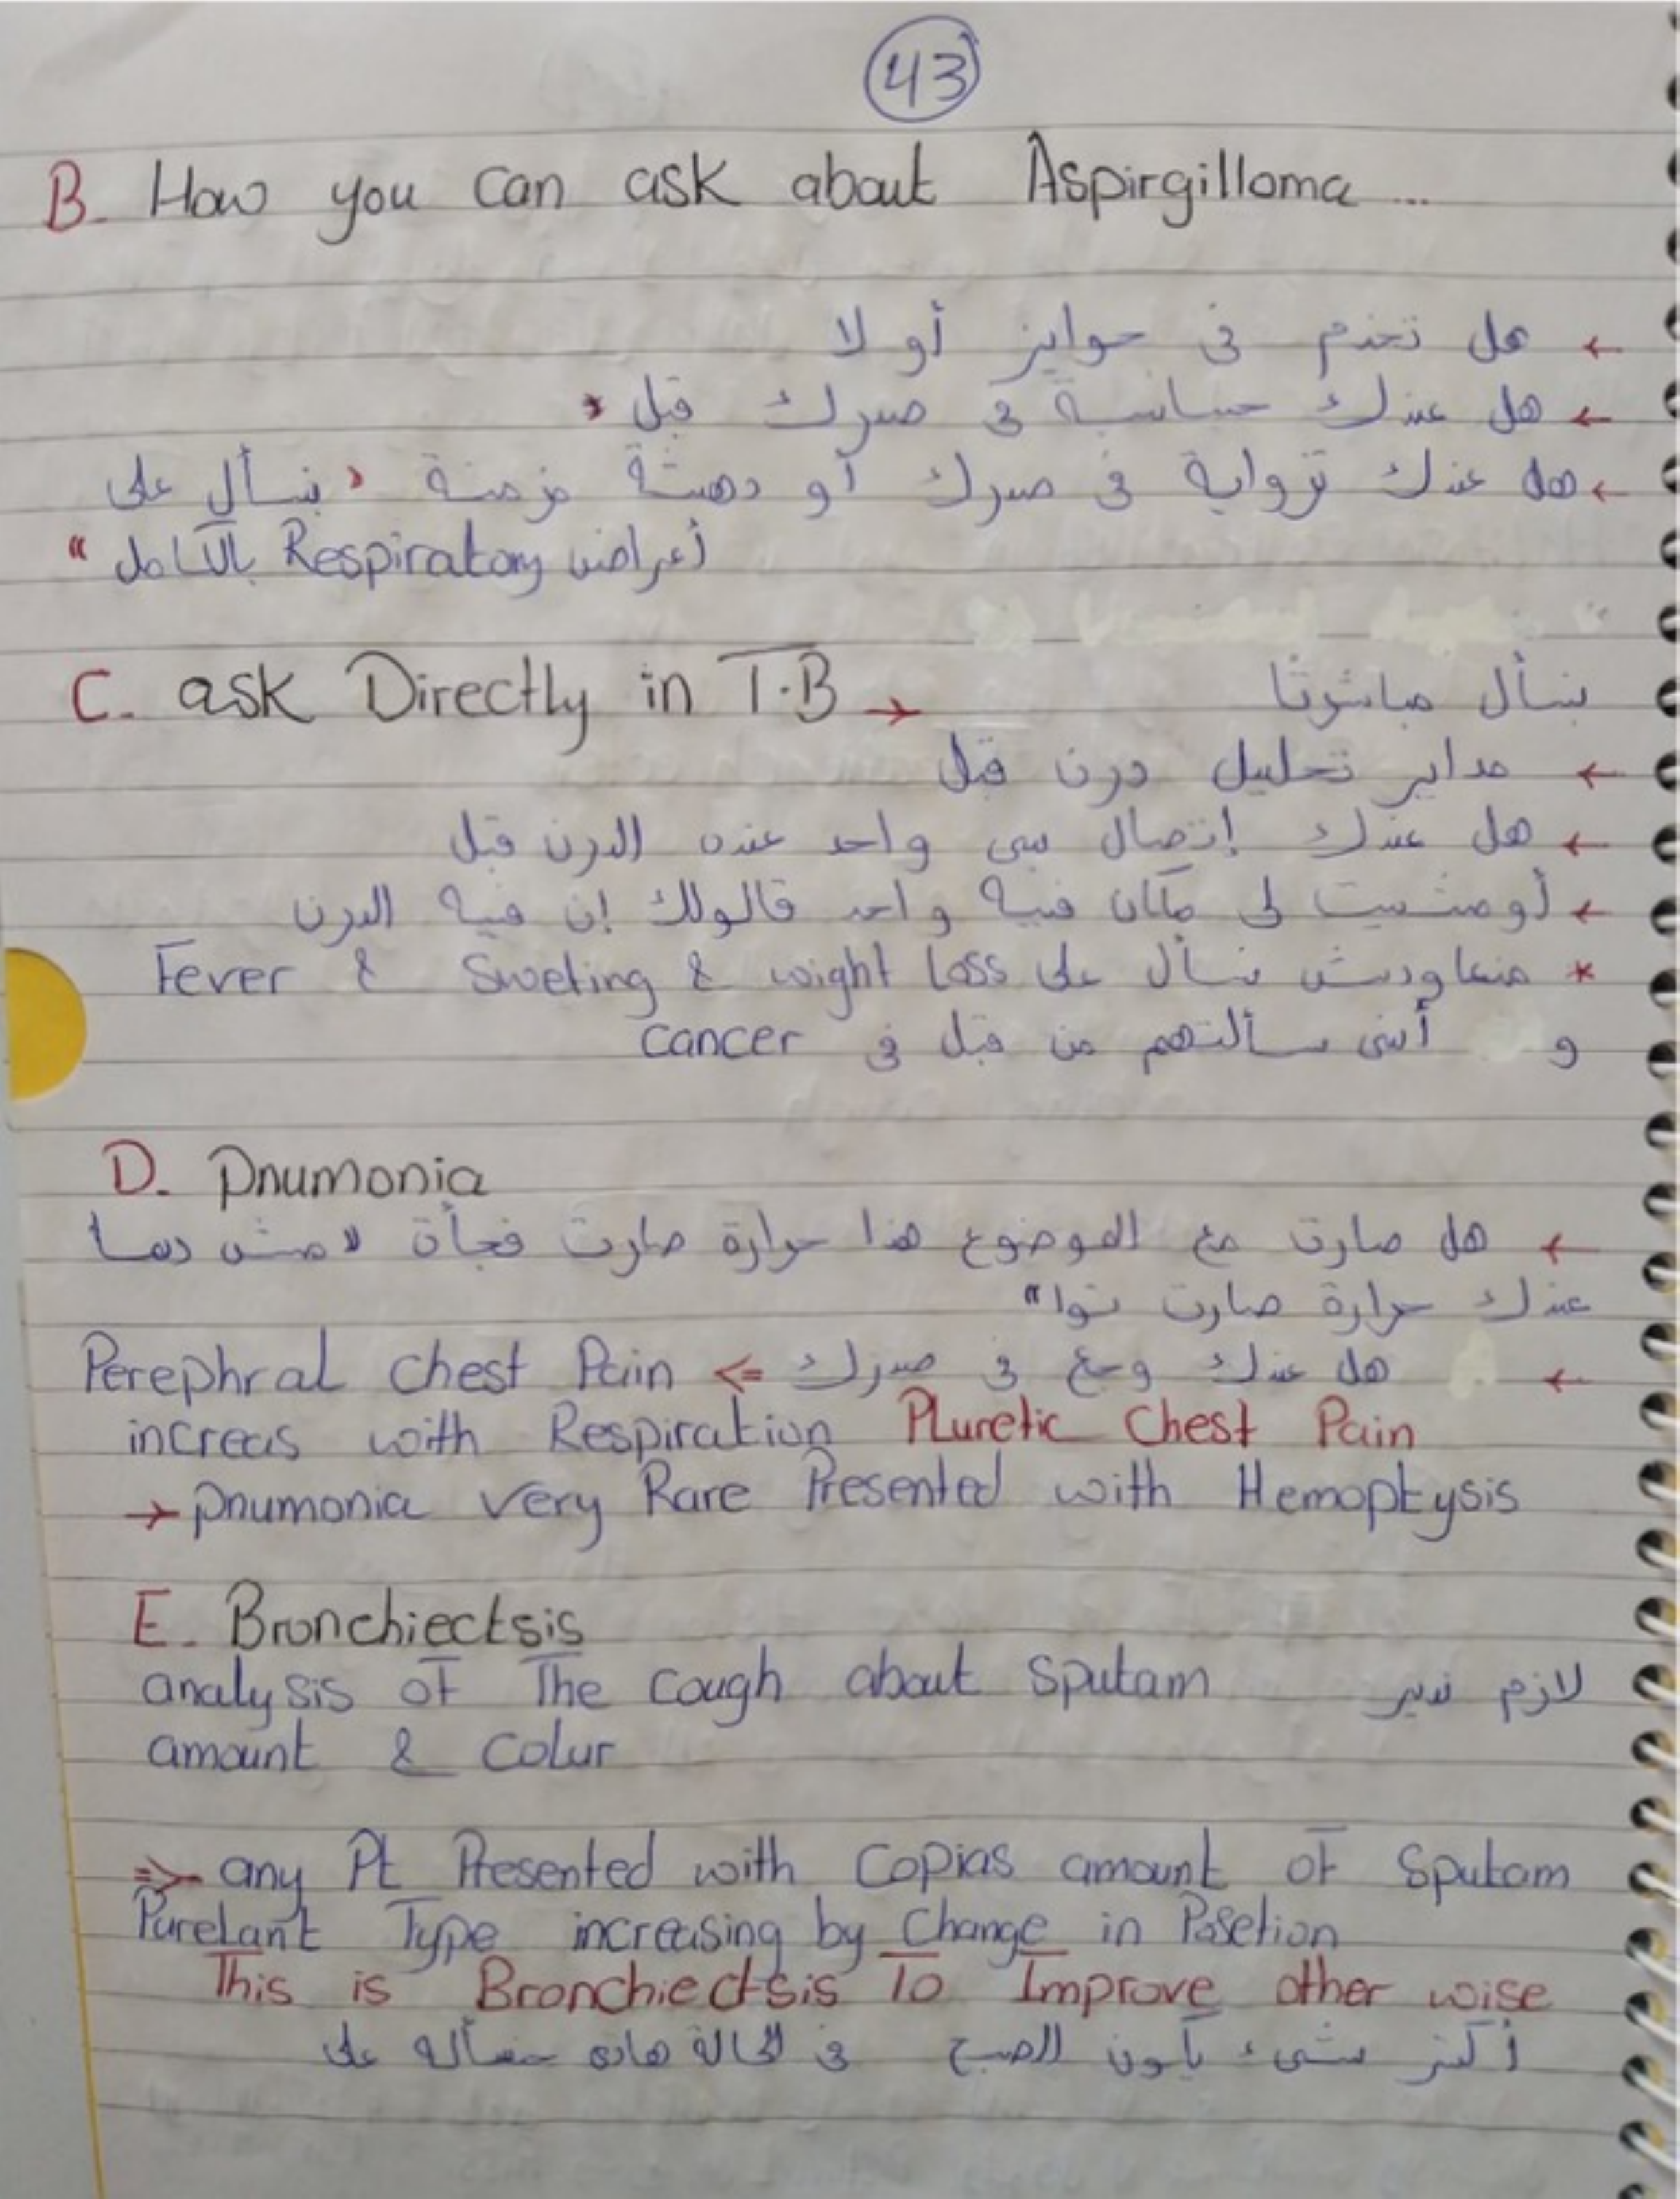 43
B. How you can ask about Aspirgilloma ...
← هل تخدم في حوايز أو لا
← هل عندك حساسية في صدرك قبل
← هل عندك تزواية في صدرك أو دهشة مزمنة " نسأل على
أعراض Respiratory بالكامل "
C. ask Directly in T.B → نسأل مباشرتا
← مداير تحليل درن قبل
← هل عندك إتصال بي واحد عنده الدرن قبل
← أو مشيت لي مكان فيه واحد قالولك إن فيه الدرن
* منعاودش نسأل على Fever & Sweting & wight Loss
و أني سألتهم من قبل في cancer
D. Pnumonia
← هل صارت مع الموضوع هذا حرارة صارت فجأة " مش ديما
عندك حرارة صارت توا "
← هل عندك وجع في صدرك ⇐ Perephral chest Pain
increas with Respiration Pluretic Chest Pain
→ pnumonia very Rare Presented with Hemoptysis
E. Bronchiectsis
لازم ندير analysis of The Cough about Sputam
amount & Colur
⇒ any Pt Presented with Copias amount of Sputam
Purelant Type increasing by Change in Posetion
This is Bronchiectsis To Improve other wise
أكتر شيء يكون الصبح في الحالة هاذه حنسأله على